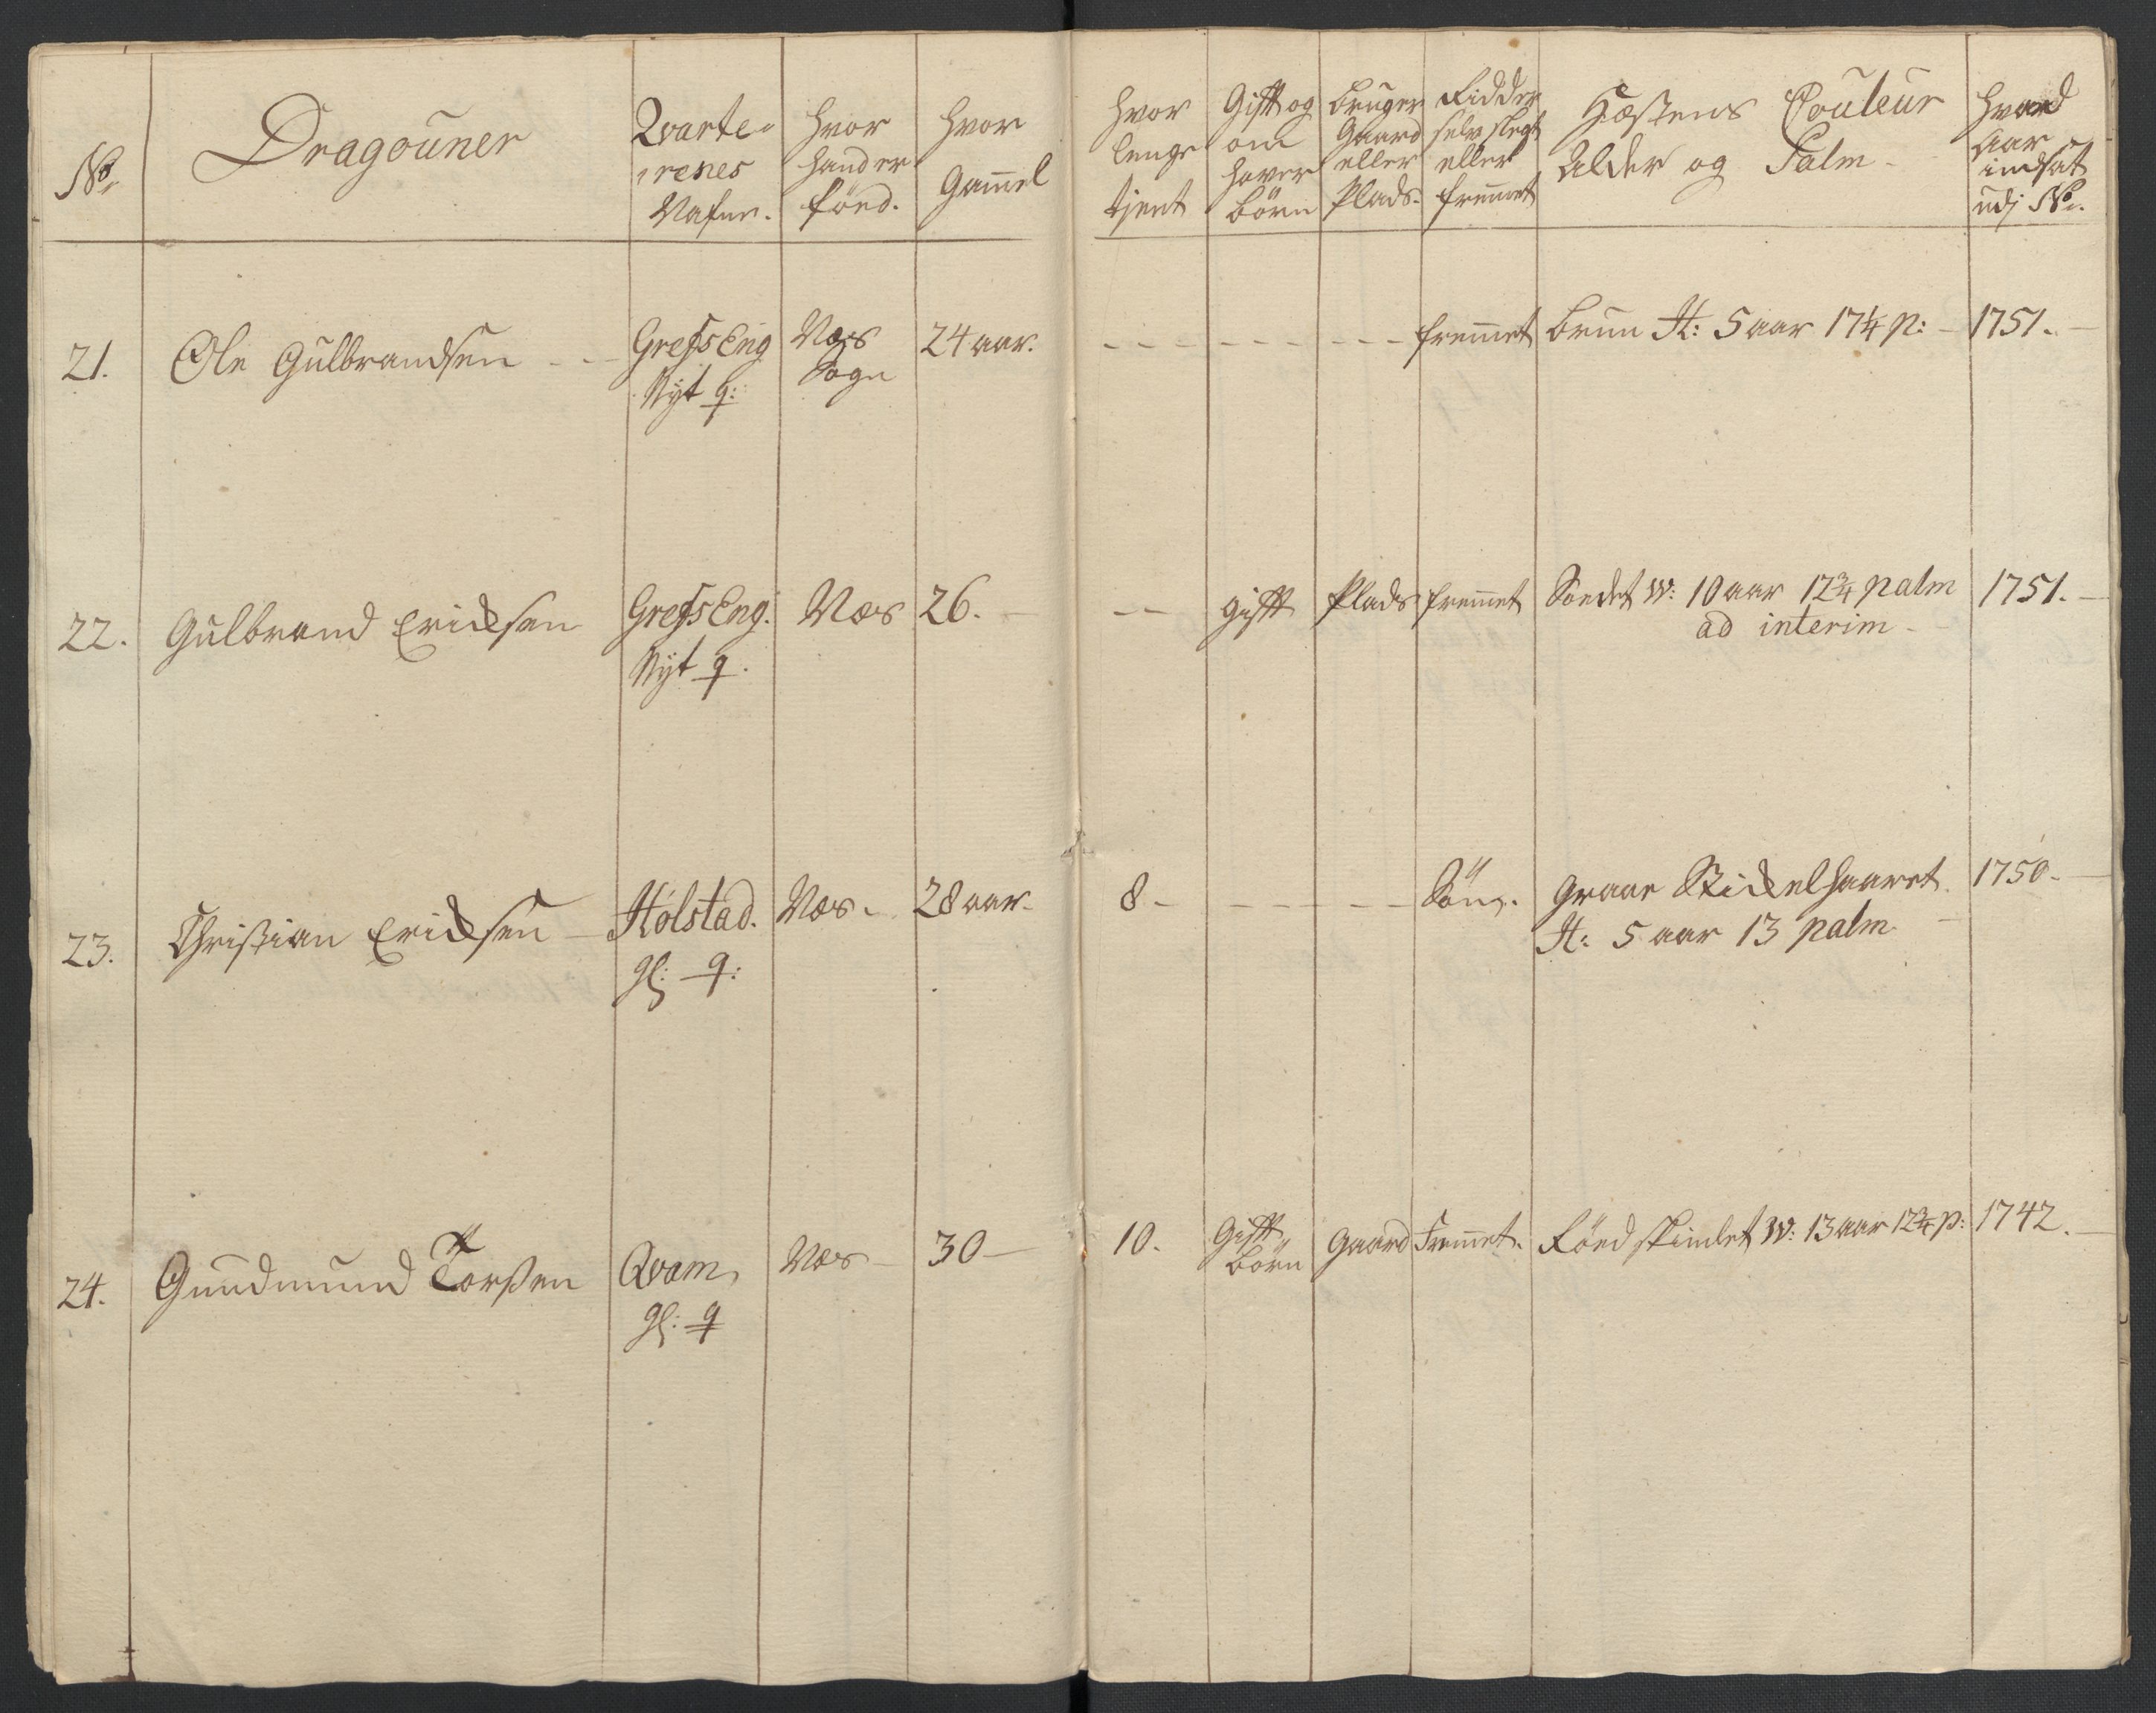 No.
Dragouner
Qvarte-
renes
Nafne.
Hvor
hand er
föed.
Hvor
Gam̄el
Hvor
lenge
tjent
Gift og
om
haver
börn
Bruger
Gaard
eller
Plads.
Ridder
selv slegt
eller
frem̄et
Hæstens Couleur
Alder og Palm
Hvad
Aar
indsat
udj No.
21. Ole Gulbrandsen
GressEng
Nÿt q:
Næs
Sogn
24 aar.
frem̄et
brun H: 5 aar 17¼ p:
1751.
22. Gulbrand Ericksen
GressEng.
Nÿt q.
Næs
26.
gifft
Plads
frem̄et
W: 10 aar 12¾ palm
ad interim
1751.
23. Christian Ericksen
Holstad.
gl: q:
Næs
28 aar
8
Sön.
graae Stickelhaaret
H: 5 aar 13 palm
1750
24. Gundmund Torsen
Qvam
gl: q
Næs
30
10.
Gifft
börn
gaard
Frem̄et.
Röedskimlet W: 13 aar 12¾ p:
1742.